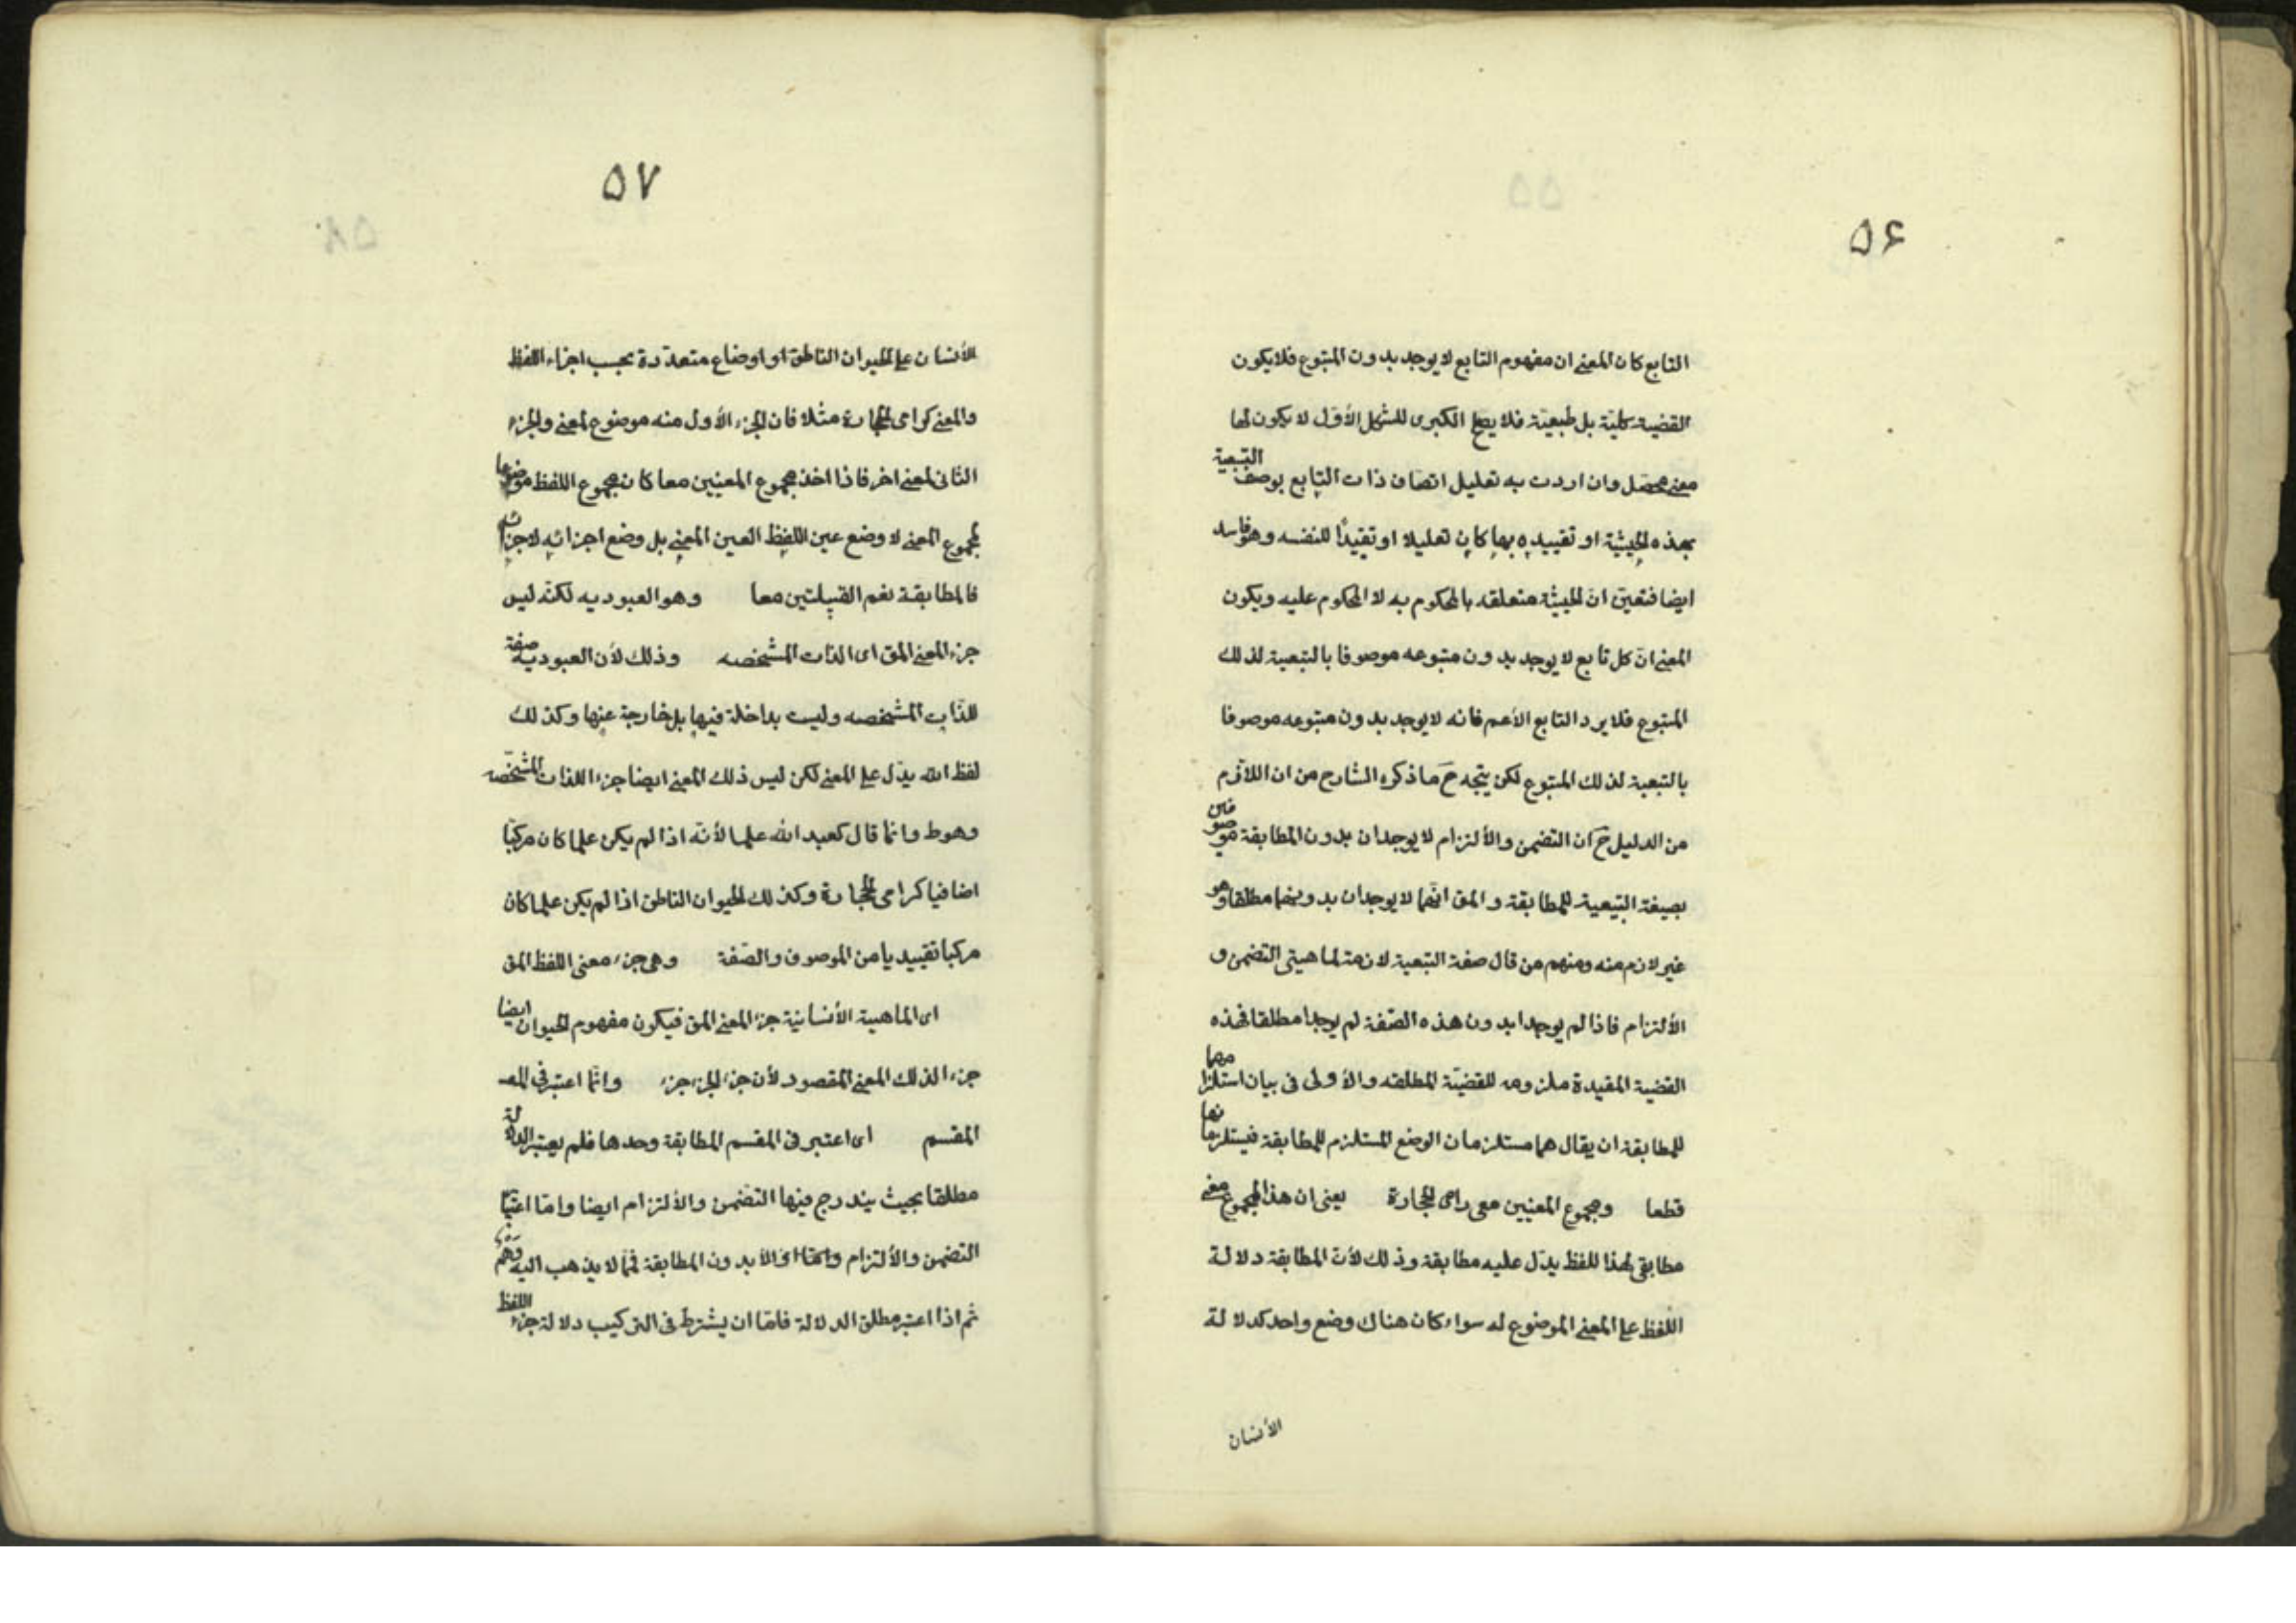 ٥٦
التابع كان المعنى ان مفهوم التابع لا يوجد بدون المتبوع فلا يكون
القضية كلية بل طبيعية فلا يصح الكبرى للشكل الأول لا يكون لها
معنى محصل وان اردت به تعليل اتصاف ذات التابع بوصف التبعية
بهذه الحيثية او تقييده بها كان تعليلا او تقييدا للنفسه وهو فاسد
ايضا فتعين ان الحيثية متعلقه بالمحكوم به لا المحكوم عليه ويكون
المعنى ان كل تابع لا يوجد بدون متبوعه موصوفا بالتبعية لذلك
المتبوع فلا يرد التابع الأعم فانه لا يوجد بدون متبوعه موصوفا
بالتبعية لذلك المتبوع لكن يتجه ح ما ذكره الشارح من ان اللازم
من الدليل ح ان التضمن والألتزام لا يوجدان بدون المطابقة موصوفين
بصيغة التبيعية للمطابقة و المق انهما لا يوجدان بدونها مطلقا وهو
غير لازم منه ومنهم من قال صفة التبعية لازمة لماهيتى التضمن و
الألتزام فاذا لم يوجدا بدون هذه الصفة لم يوجدا مطلقا فهذه
القضية المقيدة ملزومه للقضية المطلقه والأولى فى بيان استلزامهما
للمطابقة ان يقال هما مستلزمان الوضع المستلزم للمطابقة فيستلزمانها
قطعا ومجموع المعنيين معى رامى الحجارة يعنى ان هذا المجموع معنى
مطابقى لهذا للفظ يدل عليه مطابقة وذلك لأن المطابقة دلالة
اللفظ على المعنى الموضوع له سواء كان هناك وضع واحد كدلالة
الأنسان
٥٧
الأنسان على الحيوان الناطق او اوضاع متعددة بحسب اجزاء اللفظ
والمعنى كرامى الحجارة مثلا فان الجزء الأول منه موضوع لمعنى والجزء
الثانى لمعنى اخر فاذا اخذ مجموع المعنيين معا كان مجموع اللفظ موضوعا
لمجموع المعنى لا وضع عين اللفظ العين المعنى بل وضع اجزائه لاجزائه
فالمطابقة تعم القبيلتين معا وهو العبوديه لكنه ليس
جزء المعنى المق اى الذات المشخصه وذلك لأن العبوديه صفة
للذات المشخصه وليست بداخلة فيها بل خارجة عنها وكذلك
لفظ الله يدل على المعنى لكن ليس ذلك المعنى ايضا جزء اللذات المشخصه
وهوط وانما قال كعبد الله علما لأنه اذا لم يكن علما كان مركبا
اضافيا كرامى الحجارة وكذلك الحيوان الناطق اذا لم يكن علما كان
مركبا تقييديا من الموصوف والصفة وهى جزء معنى اللفظ المق
اى الماهية الأنسانية جزء المعنى المق فيكون مفهوم الحيوان ايضا
جزء الذلك المعنى المقصود لأن جزء الجزء جزء وانما اعتبر فى
المقسم اى اعتبر فى المقسم المطابقة وحدها فلم يعتبر الدلالة
مطلقا بحيث يندرج فيها التضمن والألتزام ايضا واما اعتبار
التضمن والألتزام بدون المطابقة فمما لا يذهب اليه وهم
ثم اذا اعتبر مطلق الدلالة فاما ان يشترط فى التركيب دلالة جزء اللفظ